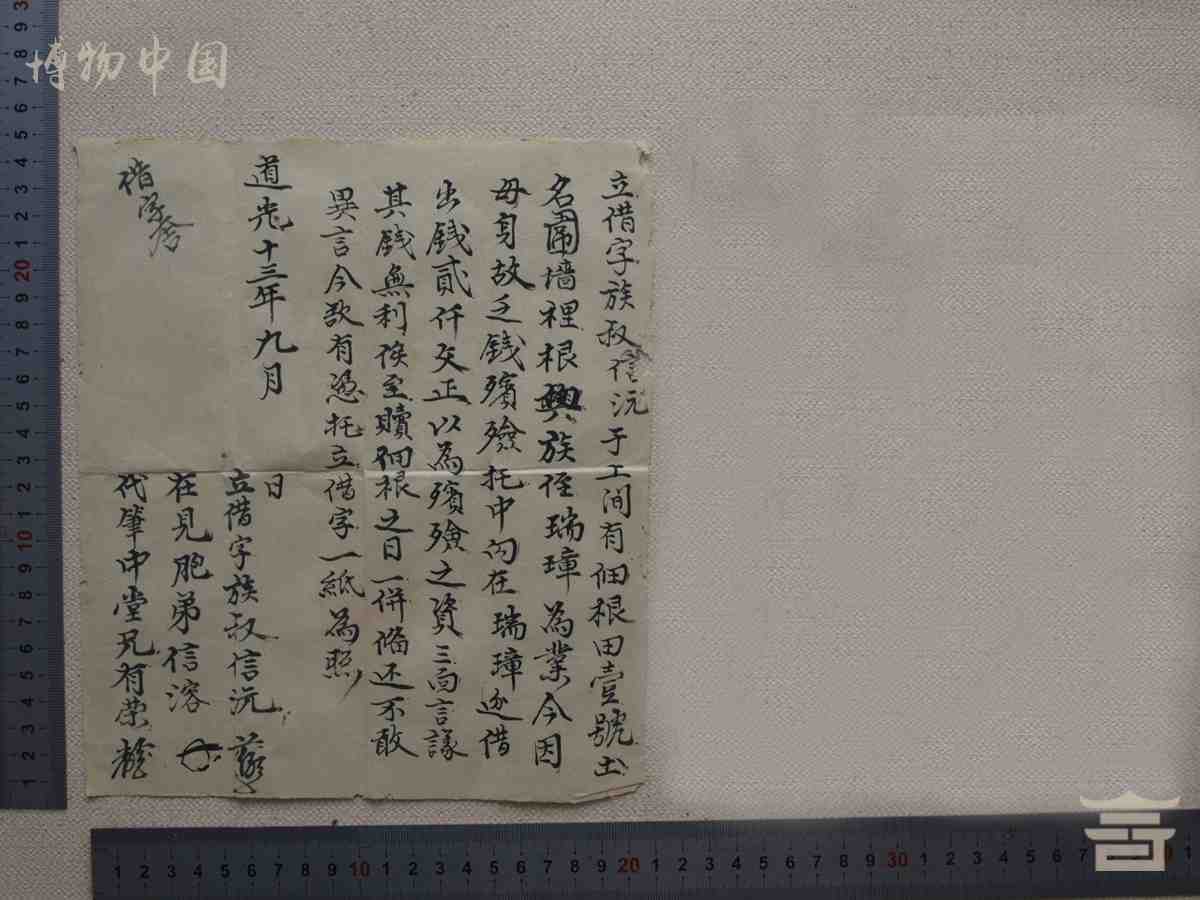 博物中国
立借字族叔信沅于工间有佃根田壹號土
名圍墙裡根與族侄瑞璋為業今因
母身故乏錢殯殮托中向在瑞璋边借
出錢貳仟文正以為殯殮之資三面言議
其錢無利候至贖佃根之日一併俻还不敢
異言今欲有憑托立借字一紙為照
道光十三年九月 日
立借字族叔信沅
在見胞弟信溶
代筆中堂兄有荣
借字